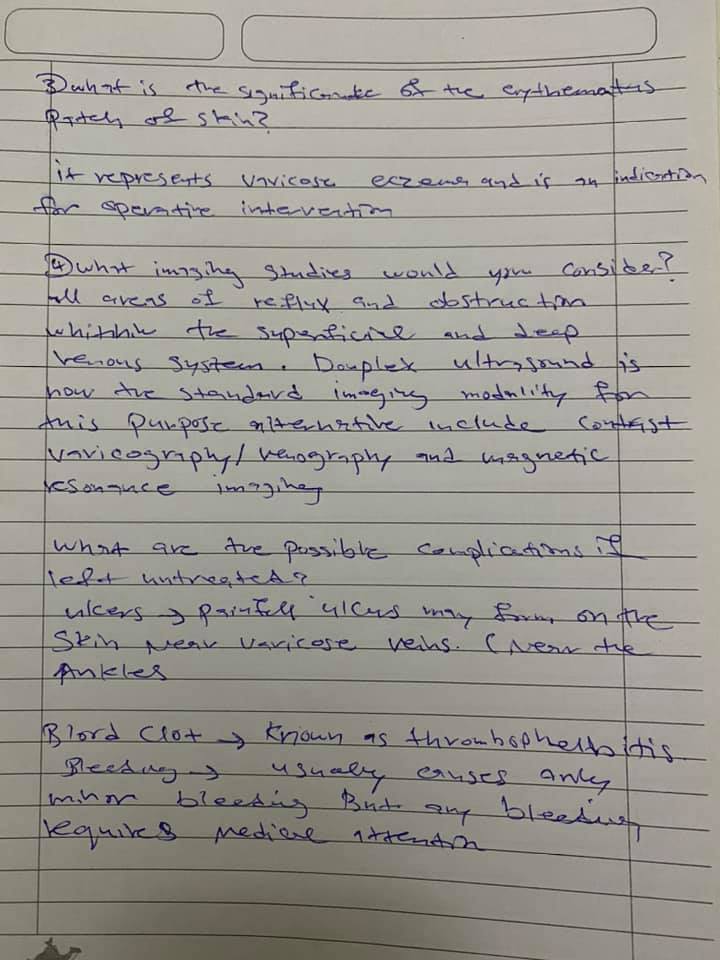 3) what is the significance of the erythematus
Patch of skin?
it represents varicose eczema and is an indication
for operative intervention
4) what imaging studies would you consider?
all areas of reflux and obstruction
whithin the superficial and deep
venous system. Douplex ultrasound is
now the standard imaging modality for
this purpose alternative include contrast
varicography/venography and magnetic
resonance imaging
What are the possible complications if
left untreated?
ulcers → painfull ulcers may form on the
Skin Near varicose veins. (Near the
Ankles
Blood Clot → Known as thrombophelbitis
Bleeding → usually causes only
minor bleeding But any bleeding
requires Medical attention